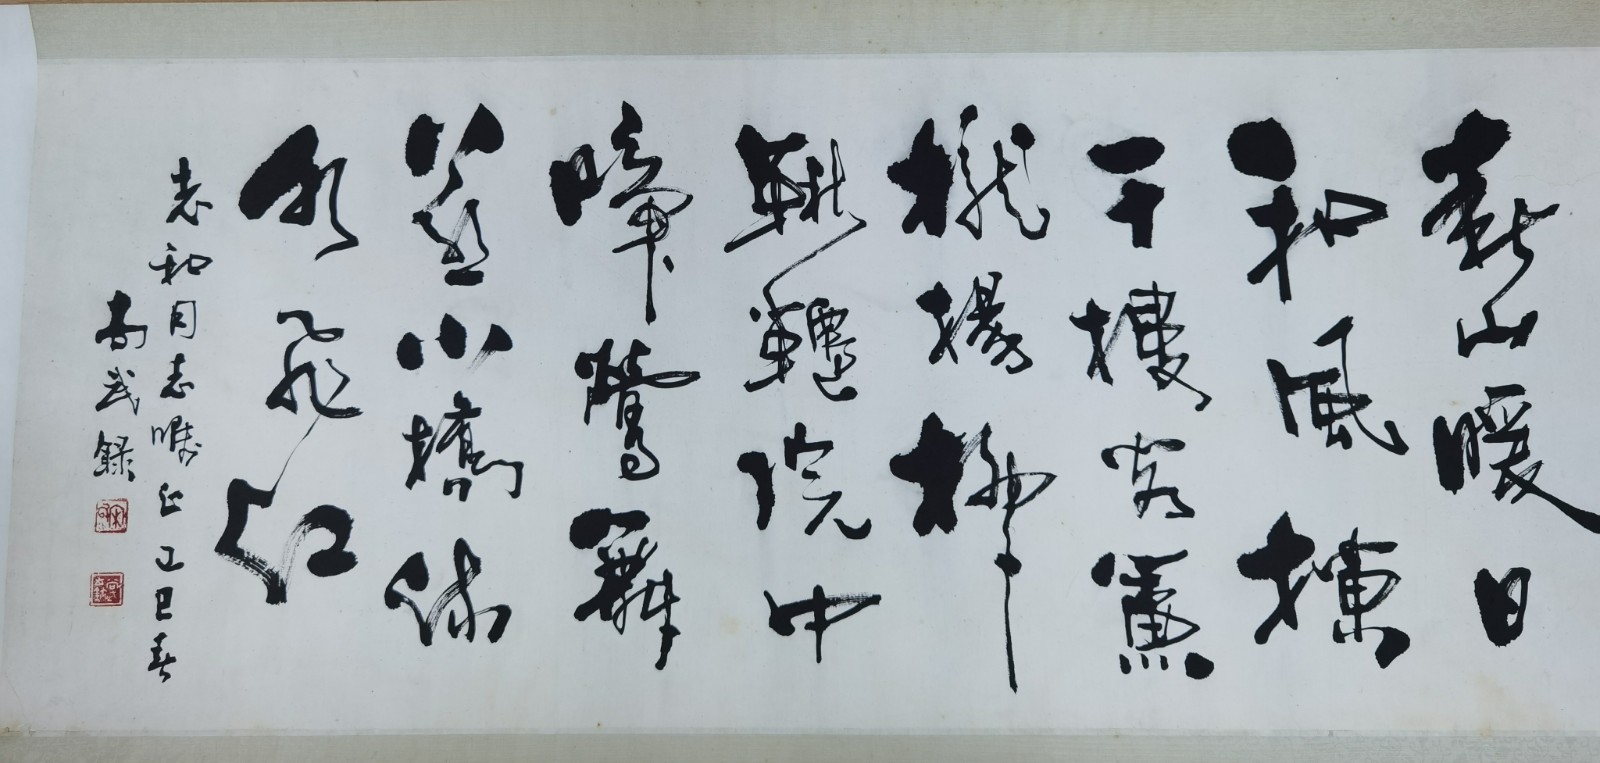 春山暖日
和風欄
干樓閣簾
櫳楊柳
鞦韆院中
啼鶯舞
燕小橋流
水飛紅
志和同志囑正 丁巳春
尚武錄